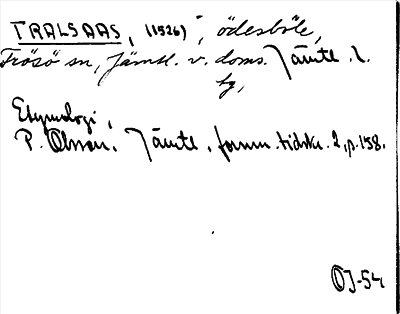 TRALSAAS, (1526) -, ödesböle,
Frösö sn, Jämtl. v. doms. Jämtl. l.
tg,
Etymologi,
P. Olsson, Jämtl. fornm. tidskr. 2, p. 158.
OJ-54